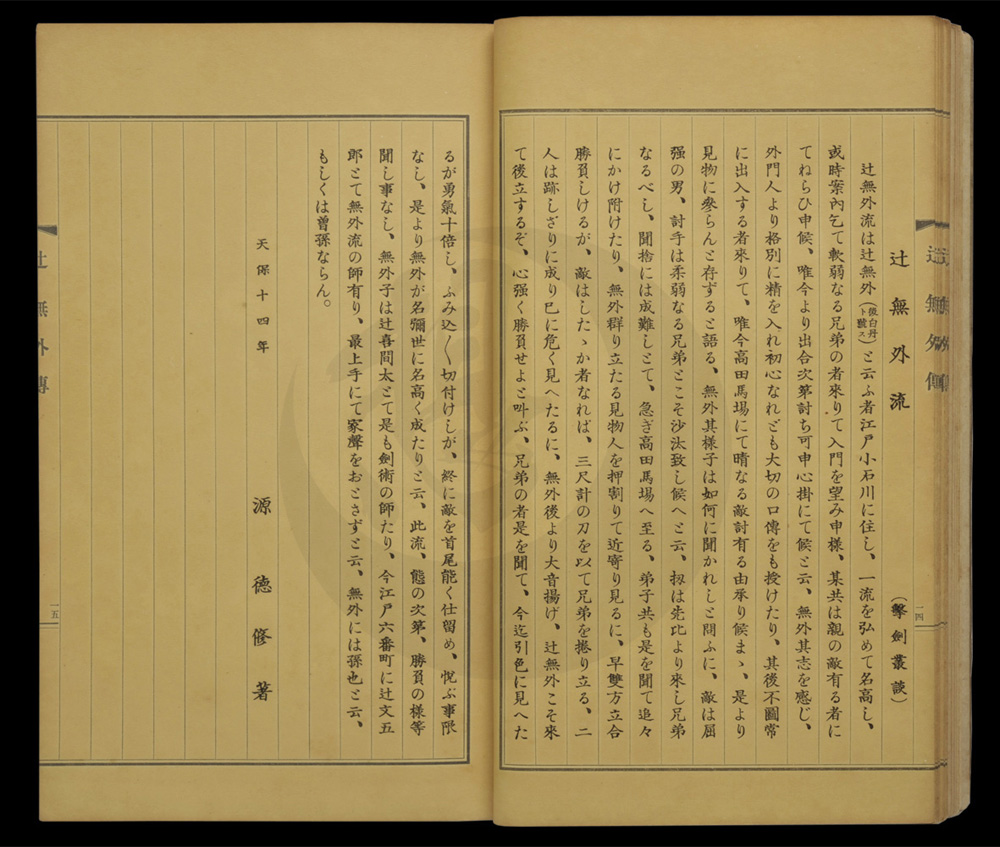 辻無外流
(擊劍叢談)
辻無外流は辻無外(後白丹ト號ス)と云ふ者江戸小石川に住し、一流を弘めて名高し、
或時案內乞て軟弱なる兄弟の者來りて入門を望み申樣、某共は親の敵有る者に
てねらひ申候、唯今より出合次第討ち可申心掛にて候と云、無外其志を感じ、
外門人より格別に精を入れ初心なれども大切の口傳をも授けたり、其後不圖常
に出入する者來りて、唯今高田馬場にて晴なる敵討有る由承り候まゝ、是より
見物に參らんと存ずると語る、無外其樣子は如何に聞かれしと問ふに、敵は屈
强の男、討手は柔弱なる兄弟とこそ沙汰致し候へと云、扨は先比より來し兄弟
なるべし、聞捨には成難しとて、急ぎ高田馬場へ至る、弟子共も是を聞て追々
にかけ附けたり、無外群り立たる見物人を押割りて近寄り見るに、早雙方立合
勝負しけるが、敵はしたゝか者なれば、三尺計の刀を以て兄弟を捲り立る、二
人は跡しざりに成り巳に危く見へたるに、無外後より大音揚げ、辻無外こそ來
て後立するぞ、心强く勝負せよと叫ぶ、兄弟の者是を聞て、今迄引色に見へた
一四
るが勇氣十倍し、ふみ込〱切付けしが、終に敵を首尾能く仕留め、悅ぶ事限
なし、是より無外が名彌世に名高く成たりと云、此流、態の次第、勝負の樣等
聞し事なし、無外子は辻喜問太とて是も劍術の師たり、今江戸六番町に辻文五
郎とて無外流の師有り、最上手にて家聲をおとさずと云、無外には孫也と云、
もしくは曾孫ならん。
天保十四年
源德修著
辻無外傳
一五